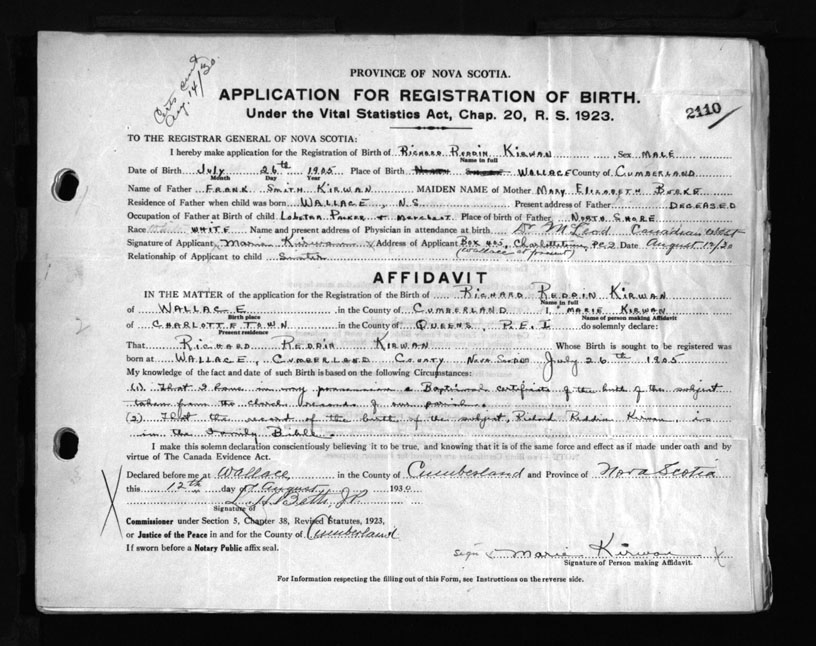 Certs sent
Aug. 14/30
PROVINCE OF NOVA SCOTIA.
APPLICATION FOR REGISTRATION OF BIRTH.
2110
Under the Vital Statistics Act, Chap. 20, R. S. 1923.
TO THE REGISTRAR GENERAL OF NOVA SCOTIA:
I hereby make application for the Registration of Birth of RICHARD REDDIN KIRWAN Sex MALE
Name in full
Date of Birth JULY 26th 1905 Place of Birth WALLACE County of CUMBERLAND
Month Day Year
Name of Father FRANK SMITH KIRWAN MAIDEN NAME of Mother MARY ELIZABETH
Residence of Father when child was born WALLACE, N.S. Present address of Father DECEASED
Occupation of Father at Birth of child LOBSTER PACKER & MERCHANT Place of Birth of Father NORTH SHORE
Race WHITE Name and present address of Physician in attendance at birth Dr McLeod Canadian West
Signature of Applicant Marie Kirwan Address of Applicant Box 405, Charlottetown, P.E.I. Date August 12/30
(Wallace at present)
Relationship of Applicant to child Sister
AFFIDAVIT
IN THE MATTER of the application for the Registration of the Birth of RICHARD REDDIN KIRWAN
Name in full
of WALLACE in the County of CUMBERLAND I, MARIE KIRWAN
Birth place Name of person making Affidavit
of CHARLOTTETOWN in the County of QUEENS, P.E.I. do solemnly declare:
Present residence
That RICHARD REDDIN KIRWAN Whose Birth is sought to be registered was
born at WALLACE, CUMBERLAND COUNTY NOVA SCOTIA July 26th 1905
My knowledge of the fact and date of such Birth is based on the following Circumstances:
(1) That I have in my possession a Baptismal certificate of the birth of the subject
taken from the church records of our parish.
(2) That the record of the birth of the subject, Richard Reddin Kirwan, is
in the Family Bible.
I make this solemn declaration conscientiously believing it to be true, and knowing that it is of the same force and effect as if made under oath and by
virtue of The Canada Evidence Act.
Declared before me at Wallace in the County of Cumberland and Province of Nova Scotia
this 12th day of August 1930
Signature of
Commissioner under Section 5, Chapter 38, Revised Statutes, 1923,
or Justice of the Peace in and for the County of Cumberland
If sworn before a Notary Public affix seal.
Sign Marie Kirwan X
Signature of Person making Affidavit.
For Information respecting the filling out of this Form, see Instructions on the reverse side.